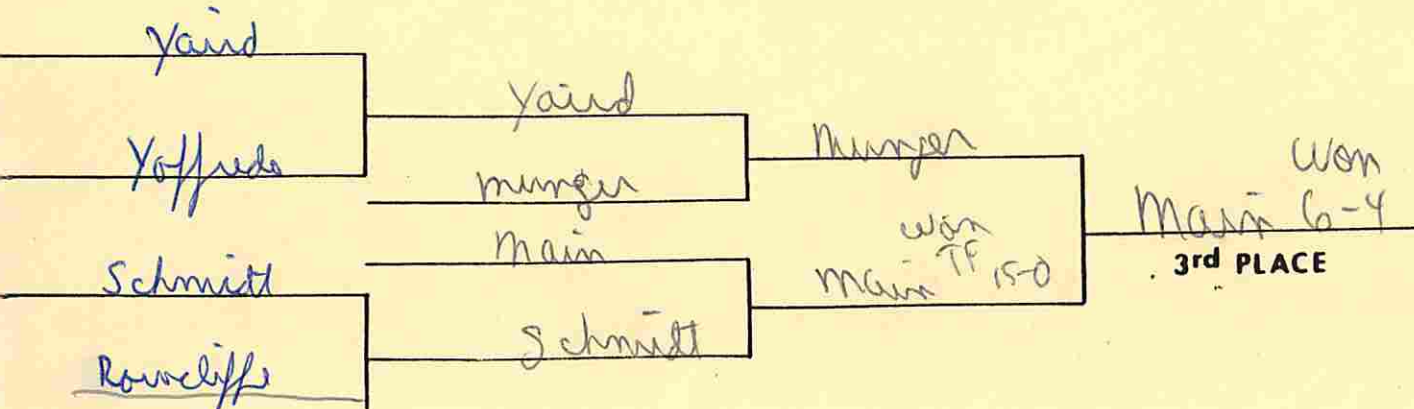 Yaird
Yoffredo
Schmidt
Rowcliffe
Yaird
Munger
Main
Schmidt
Munger
won
Main TF 15-0
Won
Main 6-4
3rd PLACE